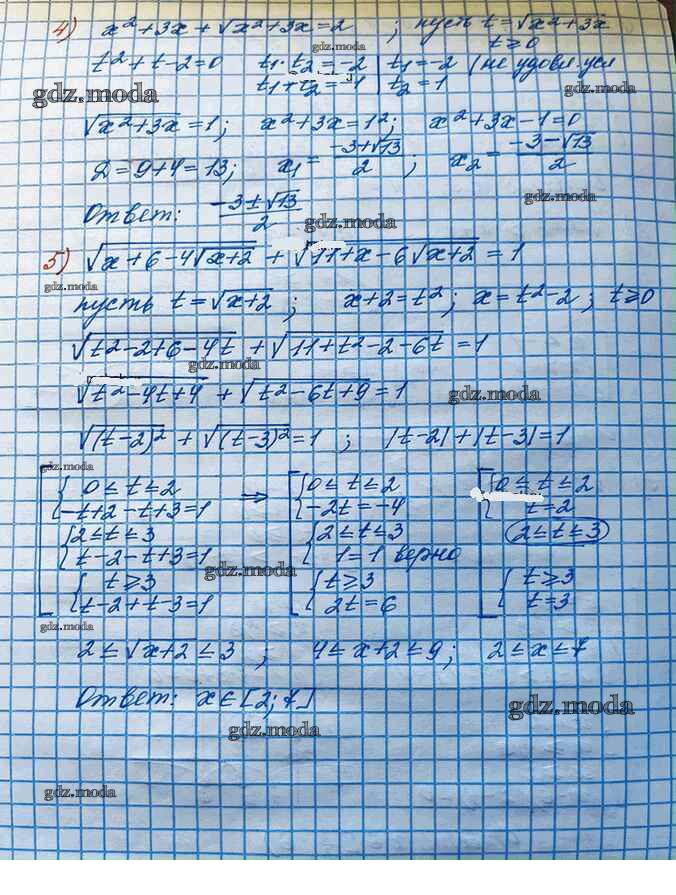 4) x² + 3x + √(x² + 3x) = 2 ; пусть t = √(x² + 3x)
t ≥ 0
gdz.moda
t² + t - 2 = 0 t₁ · t₂ = -2 | t₁ = -2 (не удовл. усл
t₁ + t₂ = -1 | t₂ = 1
gdz.moda
gdz.moda
√(x² + 3x) = 1; x² + 3x = 1²; x² + 3x - 1 = 0
gdz.moda
D = 9 + 4 = 13; x₁ = (-3 + √13)/2 ; x₂ = (-3 - √13)/2
gdz.moda
Ответ: (-3 ± √13)/2
gdz.moda
5) √(x + 6 - 4√(x + 2)) + √(11 + x - 6√(x + 2)) = 1
gdz.moda
пусть t = √(x + 2) ; x + 2 = t² ; x = t² - 2 ; t ≥ 0
√(t² - 2 + 6 - 4t) + √(11 + t² - 2 - 6t) = 1
gdz.moda
√(t² - 4t + 4) + √(t² - 6t + 9) = 1
gdz.moda
√(t - 2)² + √(t - 3)² = 1 ; |t - 2| + |t - 3| = 1
gdz.moda
[ { 0 ≤ t ≤ 2 ⇒ [ { 0 ≤ t ≤ 2 [ { 0 ≤ t ≤ 2
-t + 2 - t + 3 = 1 -2t = -4 t = 2
{ 2 ≤ t ≤ 3 { 2 ≤ t ≤ 3 2 ≤ t ≤ 3
t - 2 - t + 3 = 1 1 = 1 верно
gdz.moda
{ t ≥ 3 { t ≥ 3 { t ≥ 3
t - 2 + t - 3 = 1 2t = 6 t = 3
gdz.moda
2 ≤ √(x + 2) ≤ 3 ; 4 ≤ x + 2 ≤ 9 ; 2 ≤ x ≤ 7
Ответ: x ∈ [2; 7]
gdz.moda
gdz.moda
gdz.moda